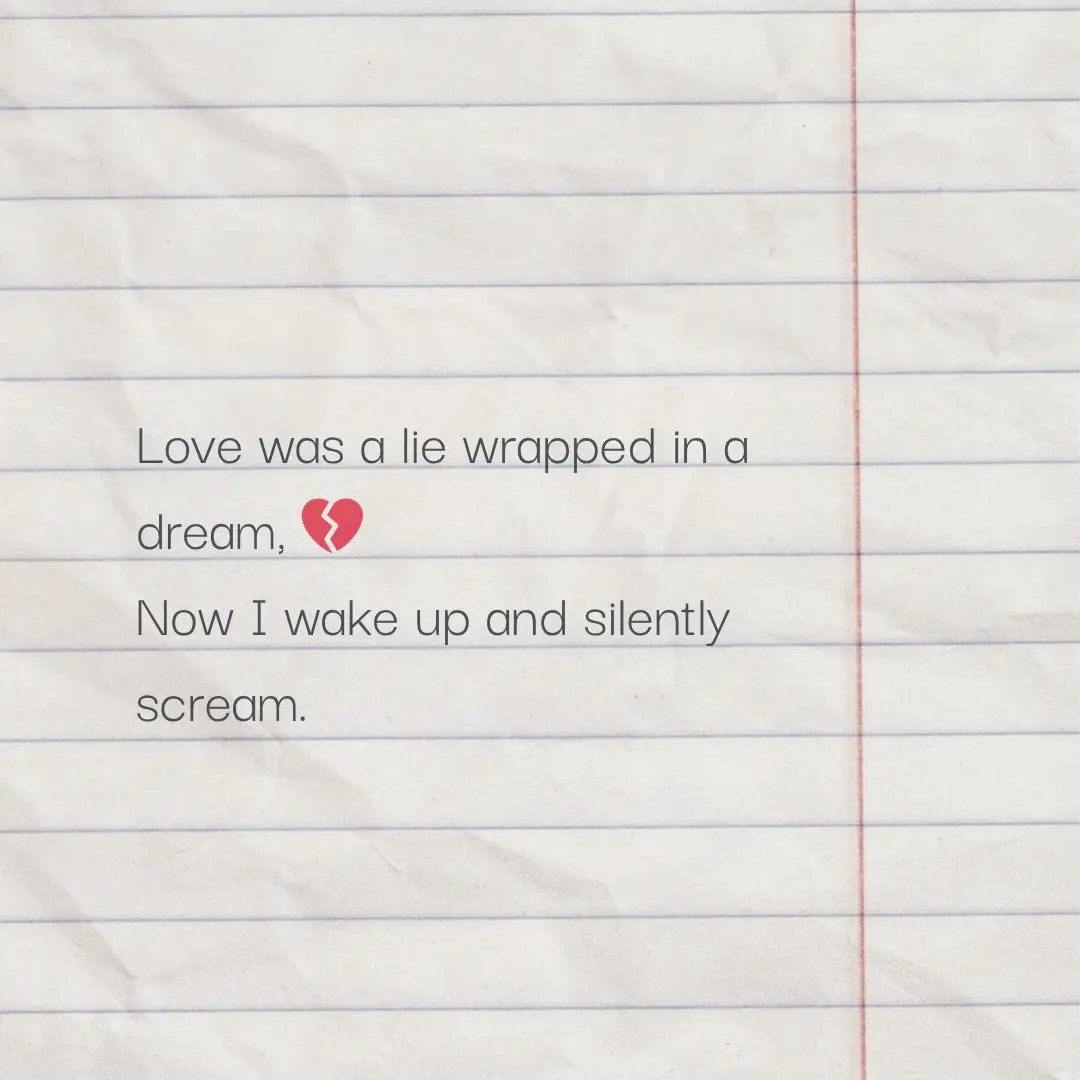 Love was a lie wrapped in a
dream, 💔
Now I wake up and silently
scream.